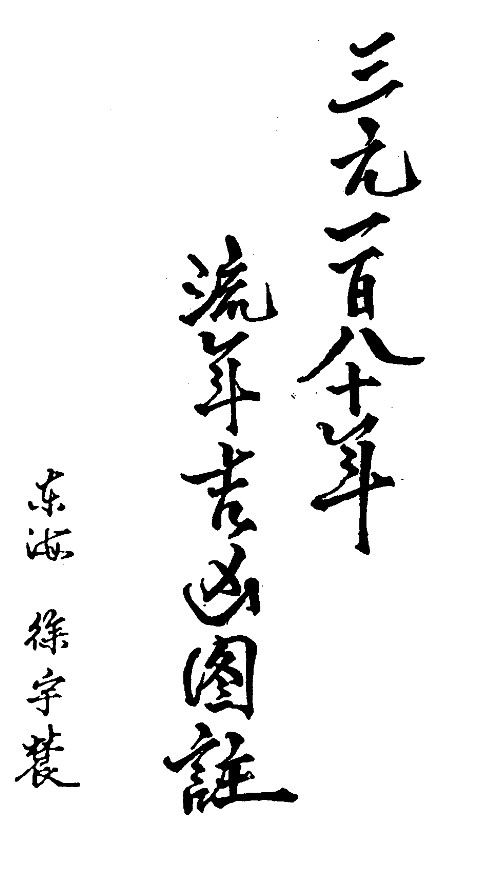 三元一百八十年
流年吉凶图註
东海 徐宇辳